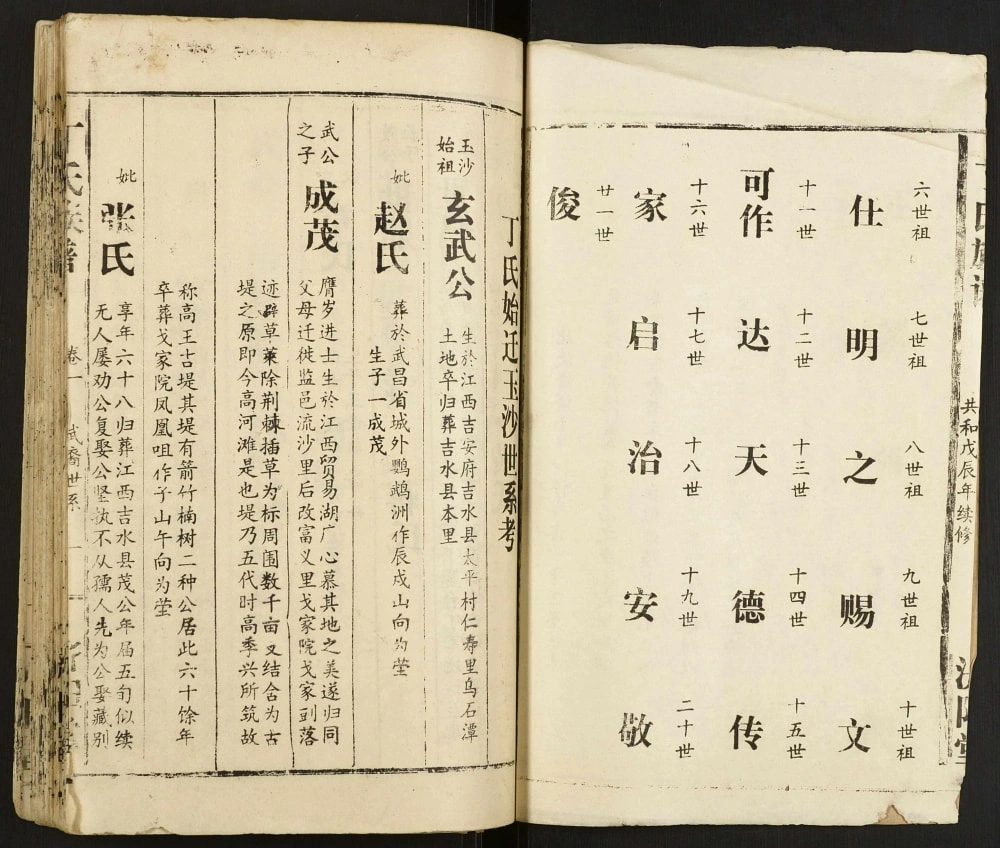 共和戊辰年续修
六世祖 七世祖 八世祖 九世祖 十世祖
仕 明 之 赐 文
十一世 十二世 十三世 十四世 十五世
可作 达 天 德 传
十六世 十七世 十八世 十九世 二十世
家 启 治 安 敬
廿一世
俊
丁氏始迁玉沙世系考
玉沙
始祖
玄武公
生於江西吉安府吉水县太平村仁寿里乌石潭
土地卒归葬吉水县本里
妣
赵氏
葬於武昌省城外鹦鹉洲作辰戍山向为茔
生子一成茂
武公
之子
成茂
膺岁进士生於江西贸易湖广心慕其地之美遂归同
父母迁徙监邑流沙里后改富义里戈家院戈家到落
迹辟草莱除荆棘插草为标周围数千亩又结合为古
堤之原即今高河滩是也堤乃五代时高季兴所筑故
称高王古堤其堤有箭竹楠树二种公居此六十馀年
卒葬戈家院凤凰咀作子山午向为茔
妣
张氏
享年六十八归葬江西吉水县茂公年届五旬似续
无人屡劝公复娶公坚执不从孺人先为公娶藏别
丁氏族谱
卷一
武裔世系
一